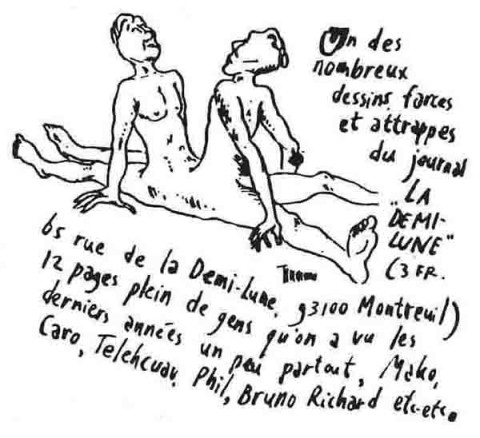 Un des
nombreux
dessins, farces
et attrappes
du journal
"LA
DEMI-
LUNE"
(3 FR.
65 rue de la Demi-Lune, 93100 Montreuil)
12 pages plein de gens qu'on a vu les
derniers années un peu partout, Mako,
Caro, Phil, Bruno Richard etc-etc.